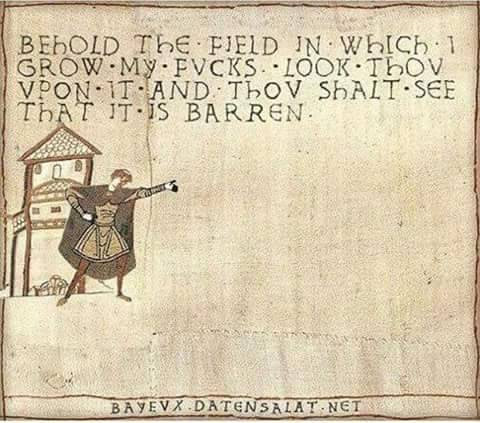 BEHOLD THE·FIELD IN·WHICH·I
GROW·MY·FVCKS··LOOK·THOV
VPON·IT·AND·THOV SHALT·SEE
THAT IT·IS BARREN·
BAYEVX·DATENSALAT·NET